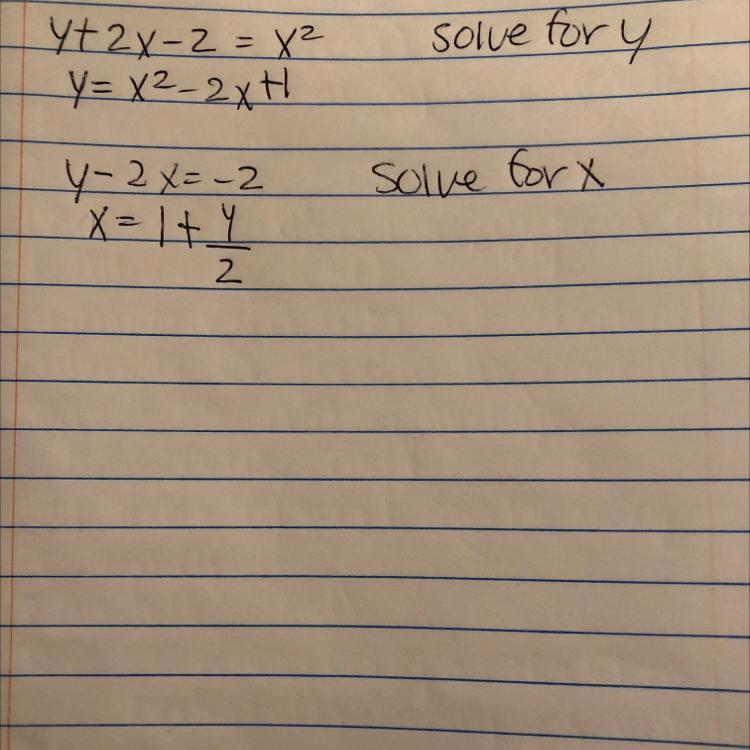 y+2x-2 = x² solve for y
y= x²-2x+1
y-2x=-2 solve for x
x= 1+ y/2